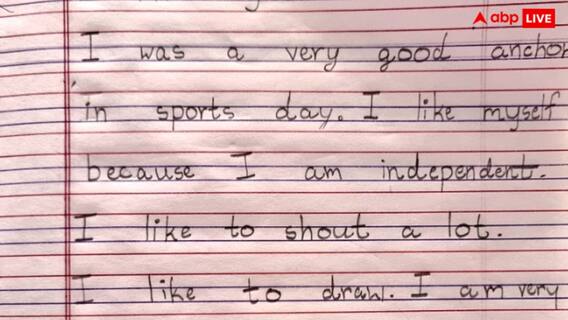 abp LIVE
I was a very good anchor
in sports day. I like myself
because I am independent.
I like to shout a lot.
I like to draw. I am very